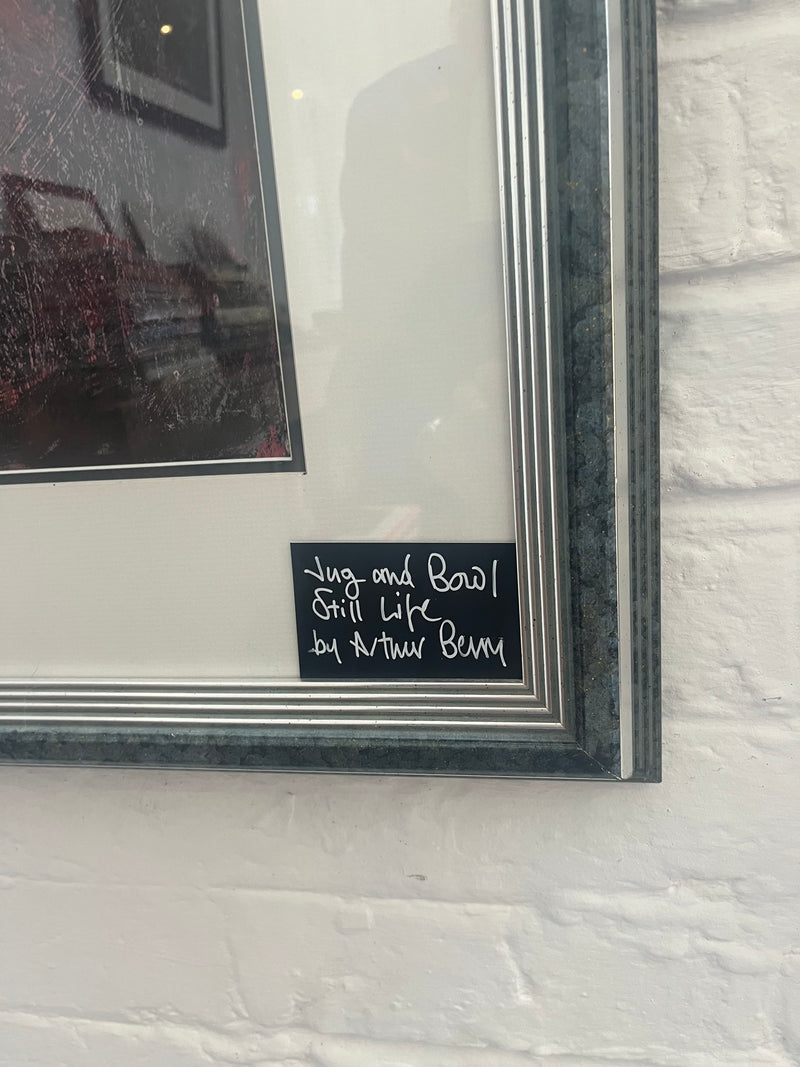 Jug and Bowl
Still Life
by Arthur Berry